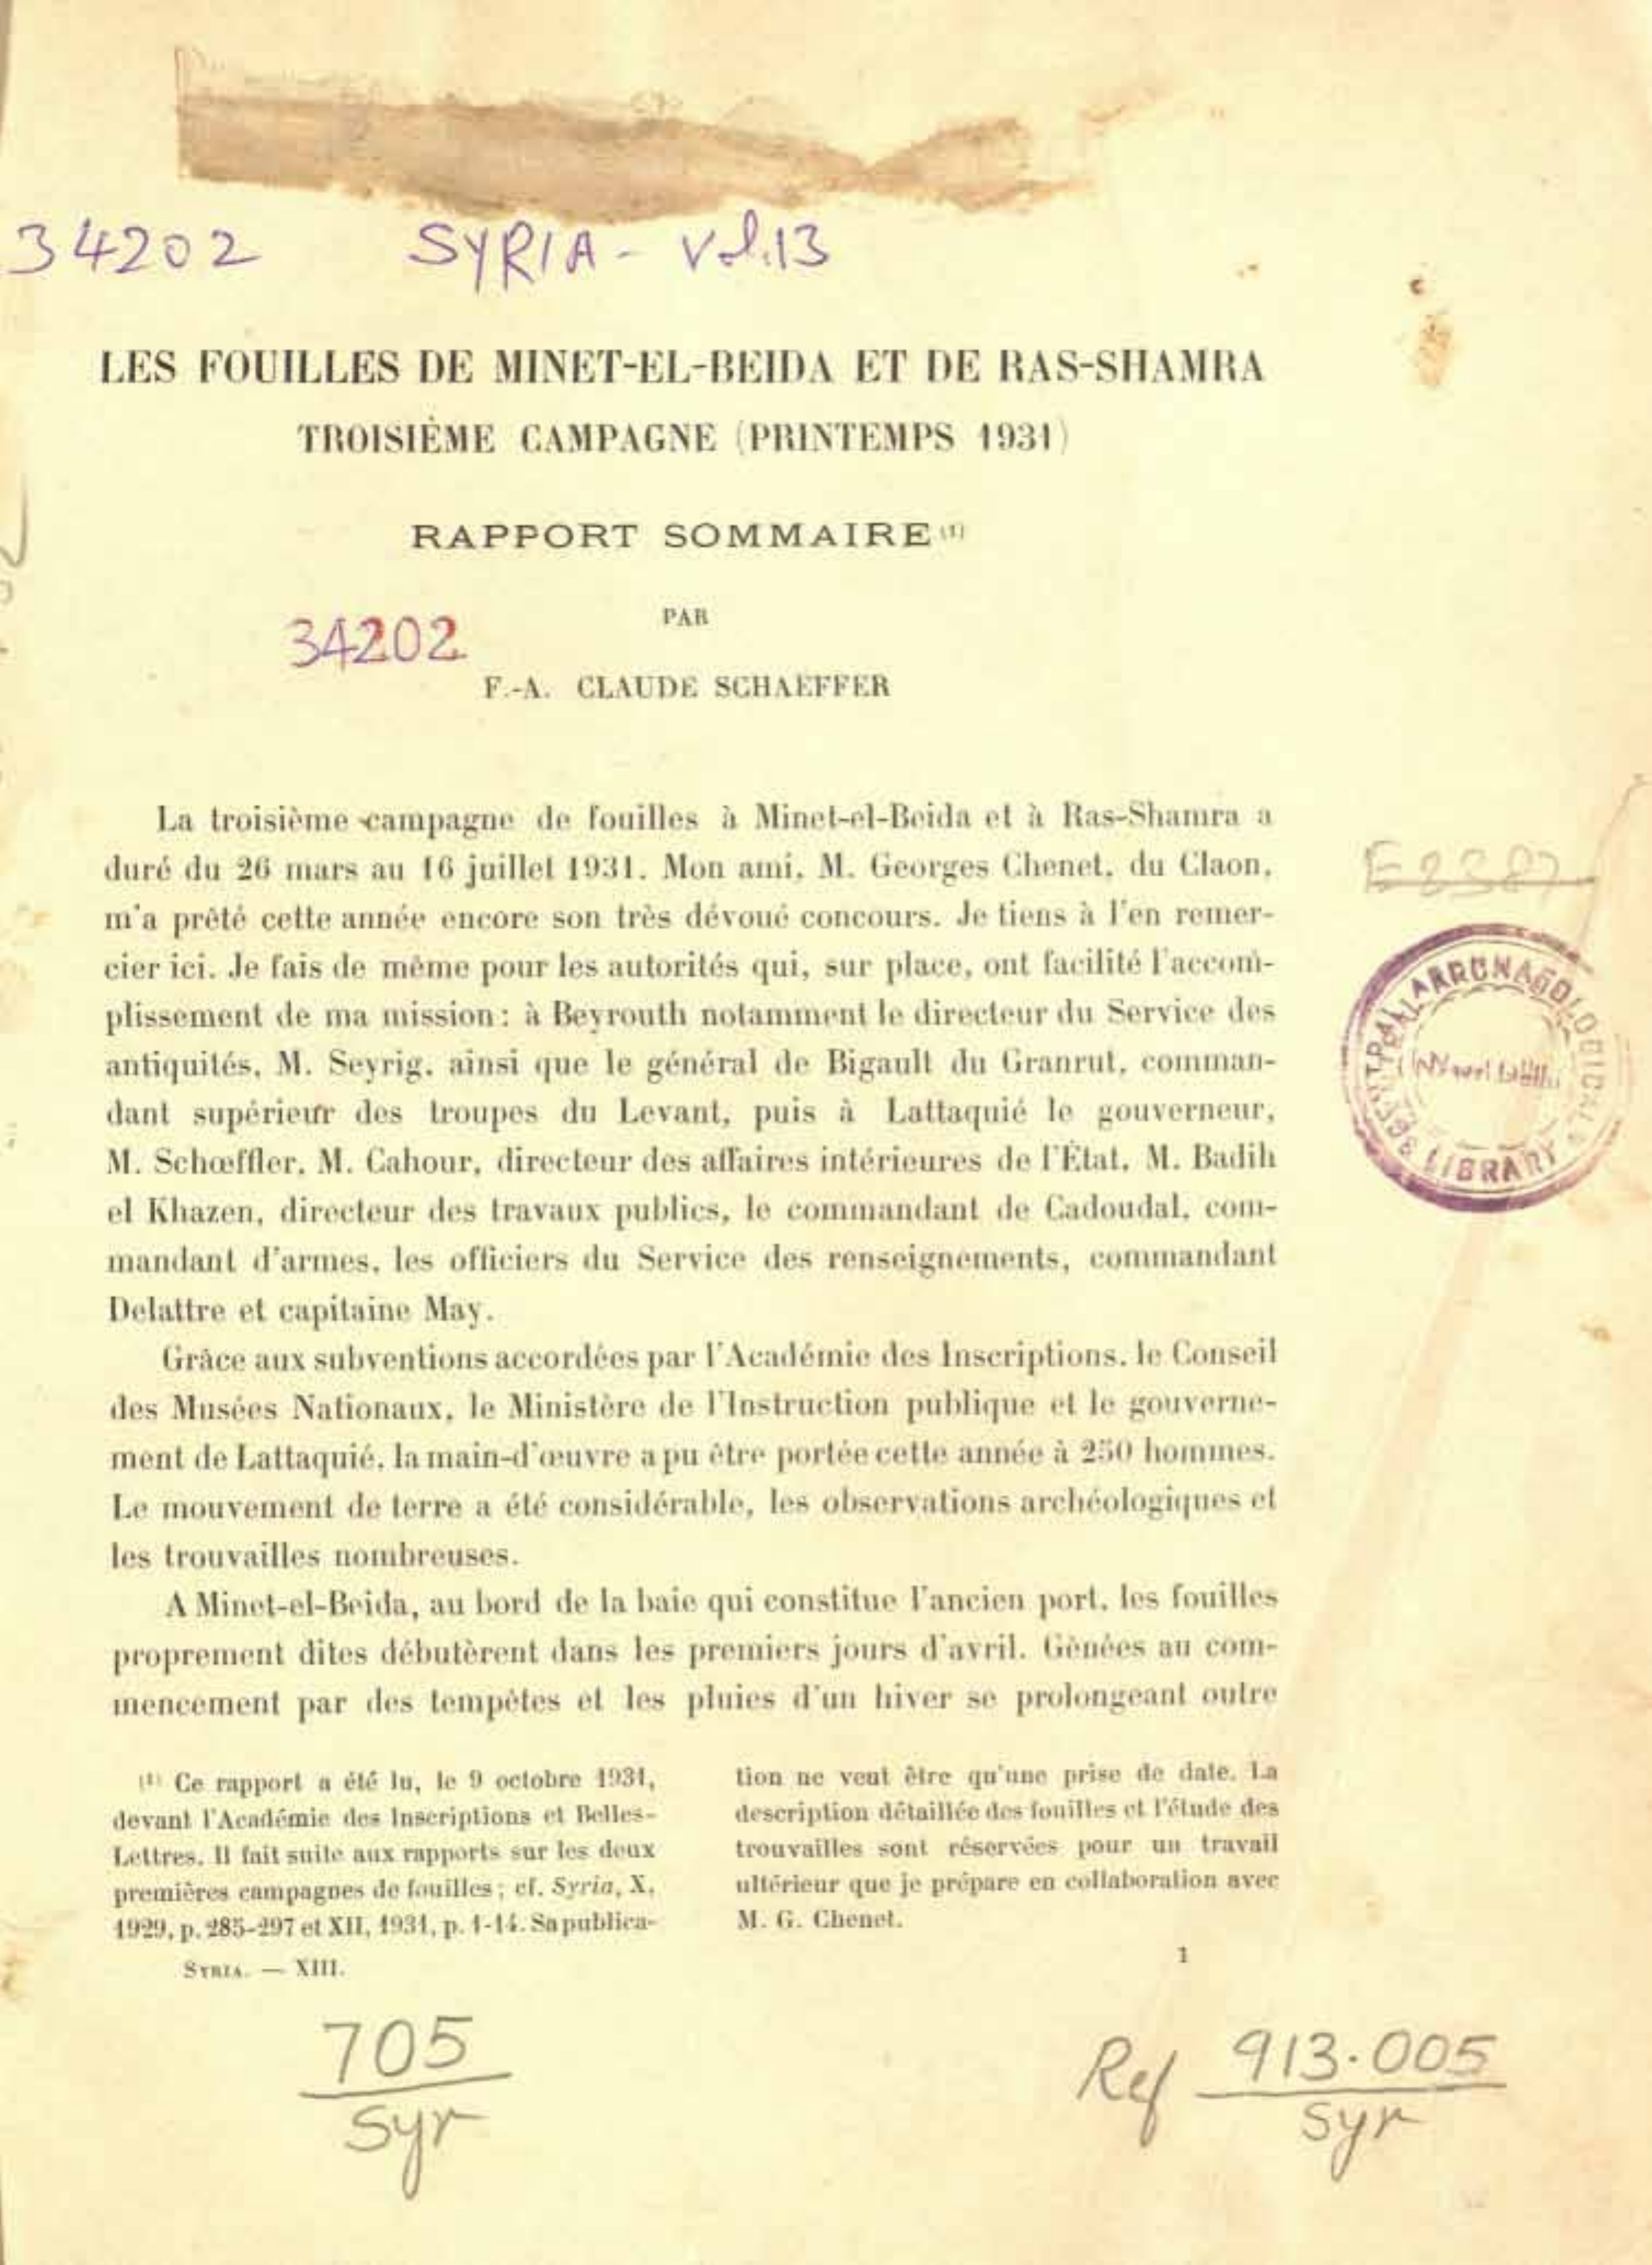 34202 SYRIA - Vol.13
LES FOUILLES DE MINET-EL-BEIDA ET DE RAS-SHAMRA
TROISIÈME CAMPAGNE (PRINTEMPS 1931)
RAPPORT SOMMAIRE (1)
PAR
34202
F.-A. CLAUDE SCHAEFFER
La troisième campagne de fouilles à Minet-el-Beida et à Ras-Shamra a
duré du 26 mars au 16 juillet 1931. Mon ami, M. Georges Chenet, du Claon,
m'a prêté cette année encore son très dévoué concours. Je tiens à l'en remer-
cier ici. Je fais de même pour les autorités qui, sur place, ont facilité l'accom-
plissement de ma mission: à Beyrouth notamment le directeur du Service des
antiquités, M. Seyrig, ainsi que le général de Bigault du Granrut, comman-
dant supérieur des troupes du Levant, puis à Lattaquié le gouverneur,
M. Schœffler, M. Cahour, directeur des affaires intérieures de l'État, M. Badih
el Khazen, directeur des travaux publics, le commandant de Cadoudal, com-
mandant d'armes, les officiers du Service des renseignements, commandant
Delattre et capitaine May.
Grâce aux subventions accordées par l'Académie des Inscriptions, le Conseil
des Musées Nationaux, le Ministère de l'Instruction publique et le gouverne-
ment de Lattaquié, la main-d'œuvre a pu être portée cette année à 250 hommes.
Le mouvement de terre a été considérable, les observations archéologiques et
les trouvailles nombreuses.
A Minet-el-Beida, au bord de la baie qui constitue l'ancien port, les fouilles
proprement dites débutèrent dans les premiers jours d'avril. Gênées au com-
mencement par des tempêtes et les pluies d'un hiver se prolongeant outre
(1) Ce rapport a été lu, le 9 octobre 1931,
devant l'Académie des Inscriptions et Belles-
Lettres. Il fait suite aux rapports sur les deux
premières campagnes de fouilles; cf. Syria, X,
1929, p. 285-297 et XII, 1931, p. 1-14. Sa publica-
tion ne veut être qu'une prise de date. La
description détaillée des fouilles et l'étude des
trouvailles sont réservées pour un travail
ultérieur que je prépare en collaboration avec
M. G. Chenet.
SYRIA. — XIII.
1
LIBRARY
705
Syr
Ref 913.005
Syr